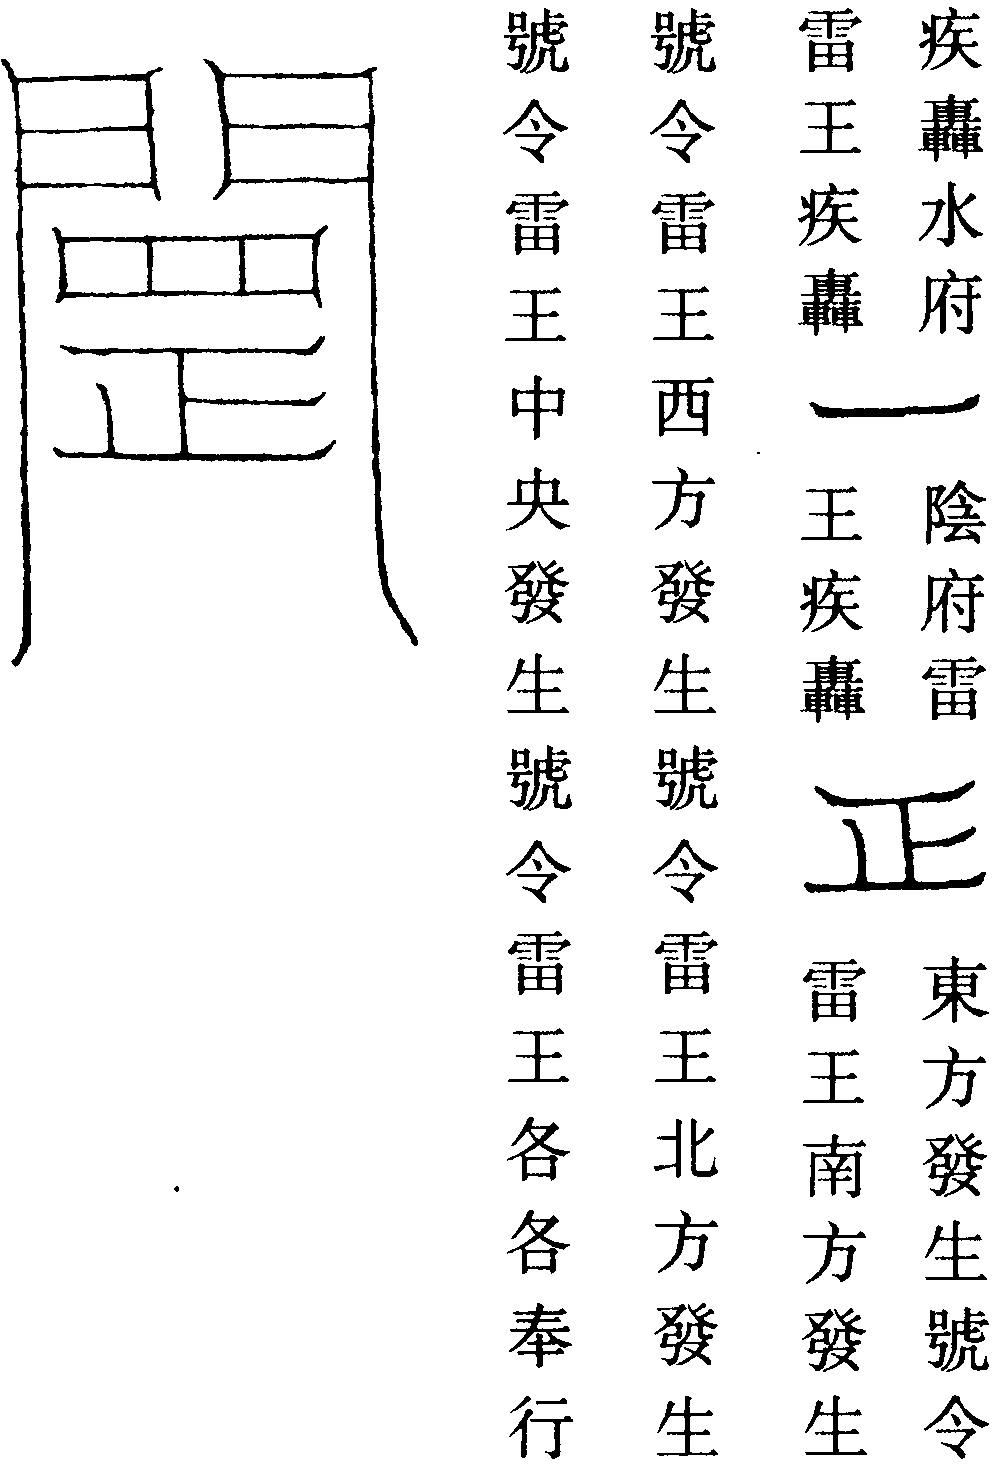 疾轟水府
雷王疾轟
一
陰府雷
王疾轟
正
東方發生號令
雷王南方發生
號令雷王西方發生號令雷王北方發生
號令雷王中央發生號令雷王各各奉行